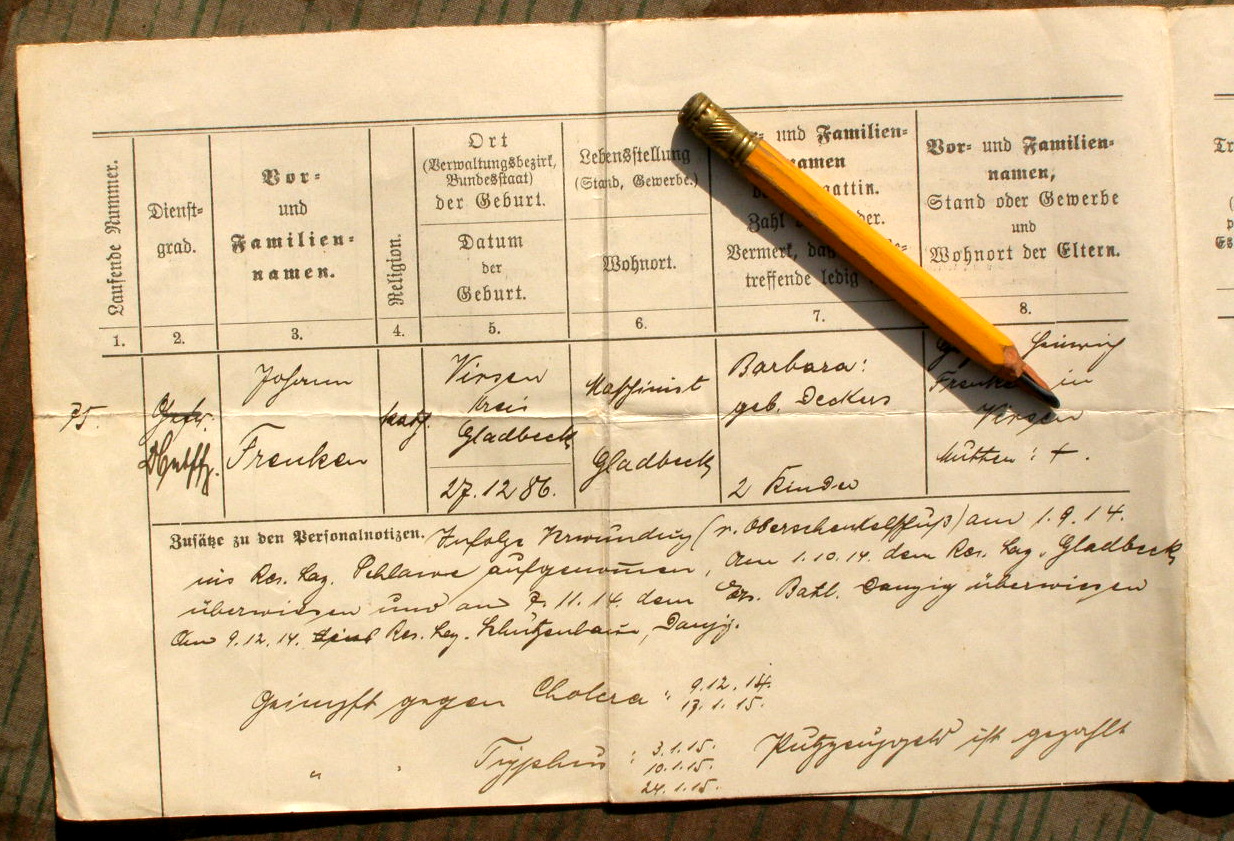 Laufende Nummer.
Dienst-
grad.
Vor-
und
Familien-
namen.
Religion.
Ort
(Verwaltungsbezirk,
Bundesstaat)
der Geburt.
Datum
der
Geburt.
Lebensstellung
(Stand, Gewerbe.)
Wohnort.
und Familien-
namen
gattin.
Zahl
Vermerk,
treffende ledig
Vor- und Familien-
namen,
Stand oder Gewerbe
und
Wohnort der Eltern.
1.
2.
3.
4.
5.
6.
7.
8.
75.
Gefr.
Johann
Frenken
kath
Virsen
Kreis
Gladbeck
27.12 86.
Maschinist
Gladbeck
Barbara:
geb. Deckers
2 Kinder
Heinrich
in
Virsen
Mutter: †.
Zusätze zu den Personalnotizen. Infolge Verwundung (r. Oberschenkelschuß) am 1.9.14.
ins Res. Laz. Schlawe aufgenommen, Am 1.10.14. dem Res. Laz. Gladbeck
überwiesen und am 7.11.14. dem Ers. Batl. Danzig überwiesen
Am 9.12.14. Res. Laz. Danzig.
Geimpft gegen Cholera : 9.12.14.
17.1.15.
" " Typhus : 3.1.15.
10.1.15.
24.1.15.
Putzzeuggeld ist gezahlt